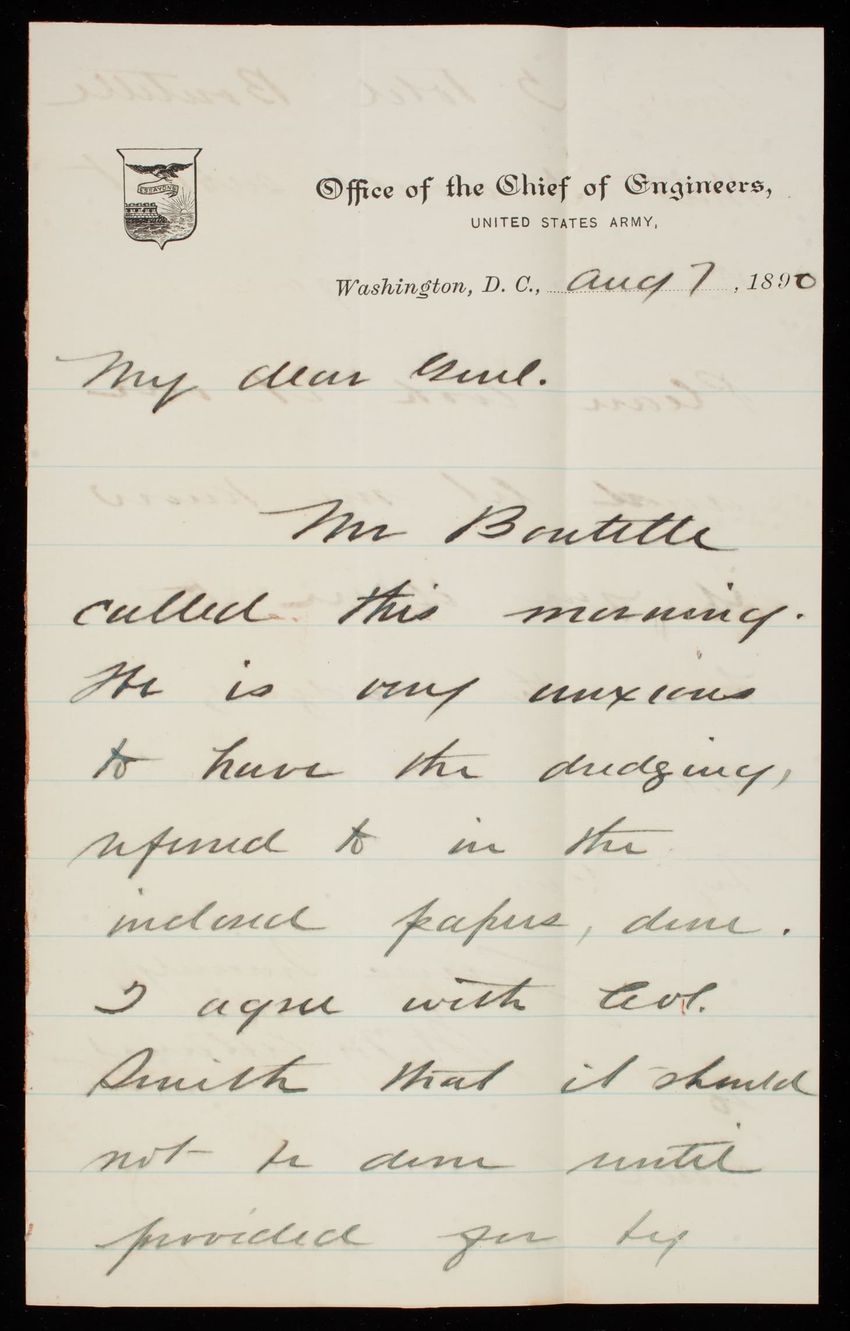 ESSAYONS
Office of the Chief of Engineers,
UNITED STATES ARMY,
Washington, D. C., Aug 7, 1890
My dear Genl.
Mr Boutelle
called this morning.
He is very anxious
to have the dredging,
referred to in the
inclosed papers, done.
I agree with Col.
Smith that it should
not be done until
provided for by